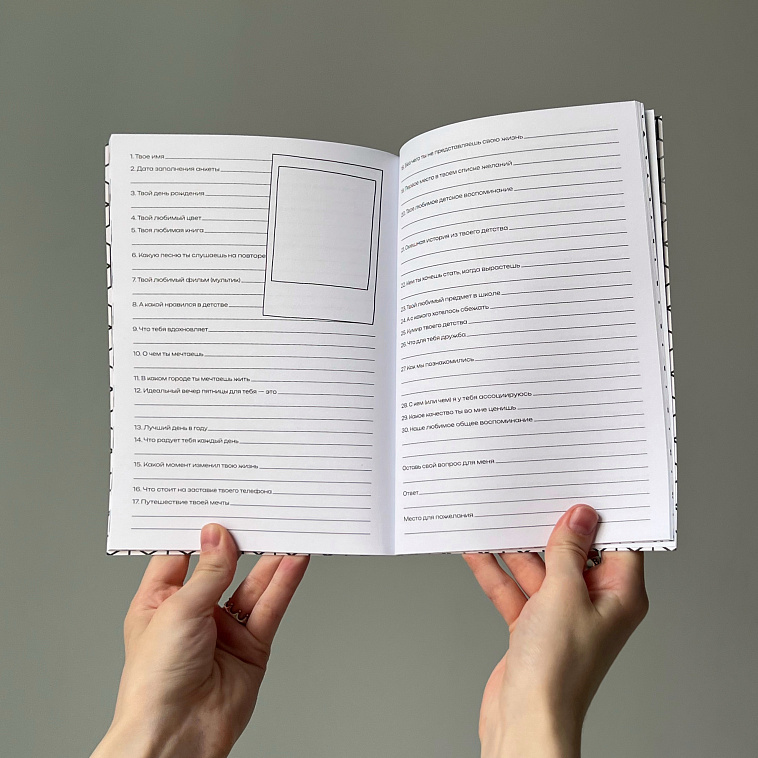 1. Твое имя
2. Дата заполнения анкеты
3. Твой день рождения
4. Твой любимый цвет
5. Твоя любимая книга
6. Какую песню ты слушаешь на повторе
7. Твой любимый фильм (мультик)
8. А какой нравился в детстве
9. Что тебя вдохновляет
10. О чем ты мечтаешь
11. В каком городе ты мечтаешь жить
12. Идеальный вечер пятницы для тебя — это
13. Лучший день в году
14. Что радует тебя каждый день
15. Какой момент изменил твою жизнь
16. Что стоит на заставке твоего телефона
17. Путешествие твоей мечты
18. Без чего ты не представляешь свою жизнь
19. Первое место в твоем списке желаний
20. Твое любимое детское воспоминание
21. Смешная история из твоего детства
22. Кем ты хочешь стать, когда вырастешь
23. Твой любимый предмет в школе
24. А с какого хотелось сбежать
25. Кумир твоего детства
26. Что для тебя дружба
27. Как мы познакомились
28. С кем (или чем) я у тебя ассоциируюсь
29. Какое качество ты во мне ценишь
30. Наше любимое общее воспоминание
Оставь свой вопрос для меня
Ответ
Место для пожелания